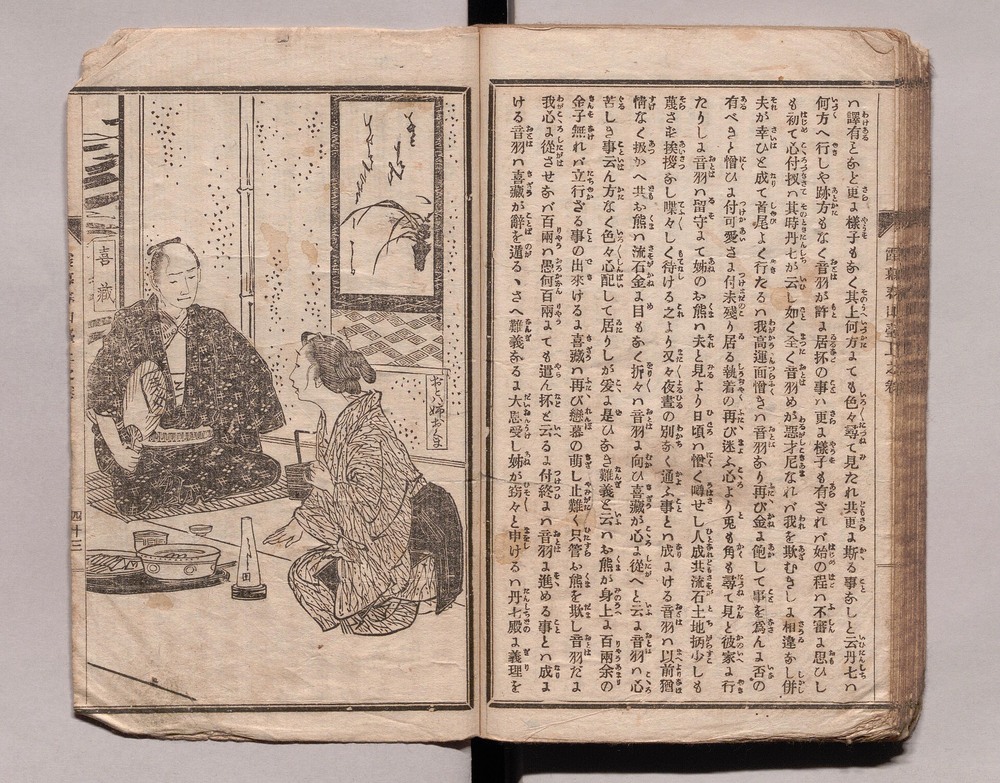 ハ譯有となと更ま樣子もなく其上何方までも色々尋て見たれ共更ま斯る事なしと云丹七ハ
何方へ行しや跡方もなく音羽が許ま居抔の事ハ更ま樣子も有されバ始の程ハ不審ま思ひし
も初て心付扨ハ其時丹七が云し如く全く音羽めが惡才尼なれバ我を欺むきしま相違なし併
夫が幸ひと成て首尾よく行たるハ我高運面憎きハ音羽なり再び金ま飽して事を爲んま否の
有べきと憎ひま付可愛さま付未殘り居る執着の再び迷ふ心より兎も角も尋て見と彼家ま行
たりしま音羽ハ留守まて姉のお熊ハ夫と見より日頃ハ憎く噂せし人成共流石土地柄少しも
蔑さず挨拶なし喋々しく待ける之より又々夜晝の別なく通ふ事と成まける音羽ハ以前猶
情なく扱かへ共お熊ハ流石金ま目もなく折々ハ音羽ま向ひ喜藏が心ま從へと云ま音羽ハ心
苦しき事云ん方なく色々心配して居りしが爰ま是ひなき難義と云ハお熊が身上ま百兩余の
金子無れバ立行ざる事の出來けるま喜藏ハ再び戀慕の萠し止難く只管お熊を欺し音羽だま
我心ま從させなバ百兩ハ愚何百兩まても遣ん抔と云るま付終まハ音羽ま進める事とハ成ま
ける音羽ハ喜藏が辭を遁るゝさへ難義なるま大恩受し姉が窃々と申けるハ丹七殿ま義理を
おとハ姉おくま
喜藏
四十二